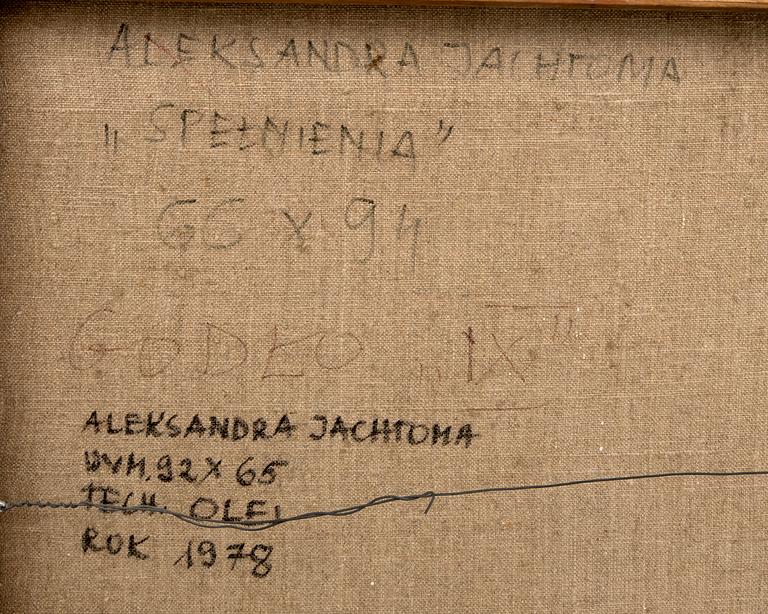 ALEKSANDRA JACHTOMA
„SPEŁNIENIA”
66 X 94
GODŁO „IX”
ALEKSANDRA JACHTOMA
WYM. 92 X 65
TECH. OLEJ
ROK 1978